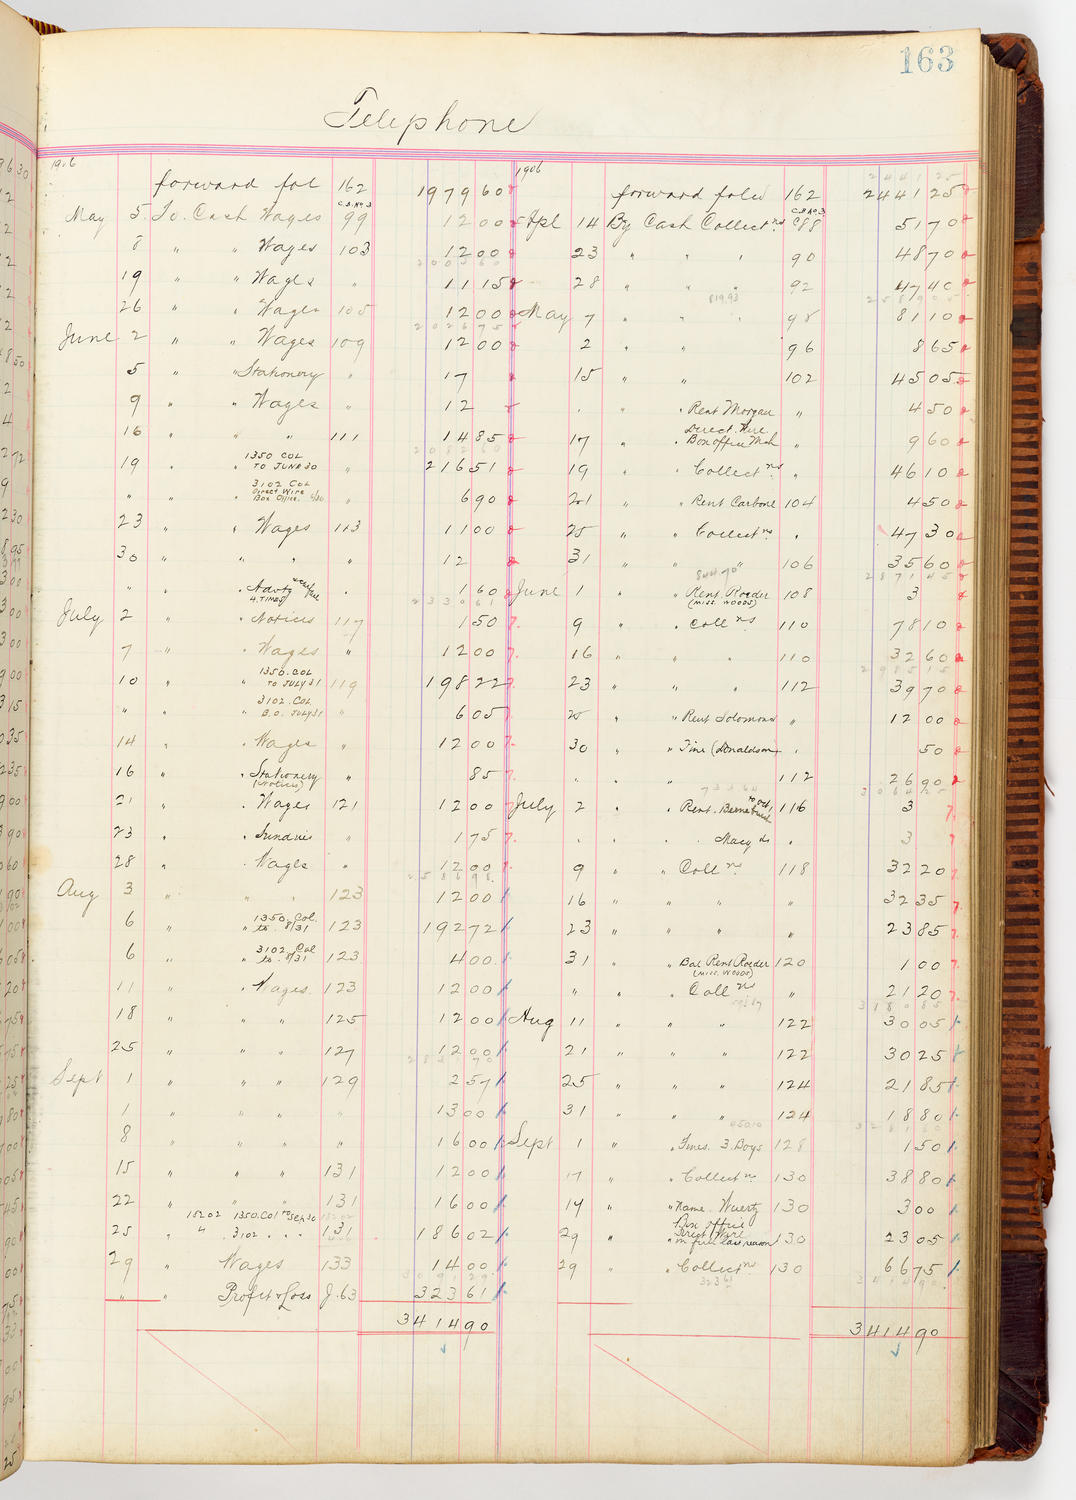 163
Telephone
1906
forward fol 162 1979 60
May 5 To Cash Wages C.B.No3 99 12 00
8 " " Wages 103 12 00
2003 60
19 " " Wages " 11 15
26 " " Wages 105 12 00
2026 75
June 2 " " Wages 109 12 00
5 " " Stationery " 17
9 " " Wages " 12
16 " " " 111 14 85
2082 60
19 " " 1350 COL TO JUNE 30 " 216 51
" " " 3102 COL Direct Wire Box Office 6/30 " 6 90
23 " " Wages 113 11 00
30 " " " " 12
" " " 4.TIMES 1 60
2330 61
July 2 " " Notices 117 1 50
7 " " Wages " 12 00
10 " " 1350.COL TO JULY 31 119 198 22
" " " 3102.COL B.O. JULY 31 " 6 05
14 " " Wages " 12 00
16 " " Stationery (Notices) " 85
21 " " Wages 121 12 00
23 " " Sundries " 1 75
28 " " Wages " 12 00
2586 98
Aug 3 " " " 123 12 00
6 " " 1350.Col. to 8/31 123 192 72
6 " " 3102.Col to 8/31 123 4 00
11 " " Wages 123 12 00
18 " " " 125 12 00
25 " " " 127 12 00
Sept 1 " " " 129 2 57
1 " " " " 13 00
8 " " " " 16 00
15 " " " 131 12 00
22 " " " 131 16 00
25 " " 15202 1350.Col to Sep 30 3102 " " " 131 186 02
29 " Wages 133 14 00
3091 29
" " Profit & Loss J.63 323 61
3414 90
1906
2441 25
forward folio 162 2441 25
Apl 14 By Cash Collectns C.B.No3 88 51 70
23 " " " 90 48 70
28 " " " 92 47 40
819.93 2589 05
May 7 " " " 98 81 10
2 " " 96 8 65
15 " " 102 45 05
" " " Rent Morgan " 4 50
17 " " Direct.Wire Box office Mch " 9 60
19 " " Collectns " 46 10
21 " " Rent Carbone 104 4 50
25 " " Collectns " 47 30
31 " " " 106 35 60
844.70 2871 45
June 1 " " Rent.Roeder (MISS. WOODS) 108 3
9 " " Collns 110 78 10
16 " " " 110 32 60
2985 15
23 " " " 112 39 70
25 " " Rent Solomons " 12 00
30 " " Fine (Donaldson) " 50
" " " 112 26 90
3064 25
July 2 " " Rent. to Oct 1 116 3
" " " Macy ds " 3
9 " " Collns 118 32 20
16 " " " " 32 35
23 " " " " 23 85
31 " " Bal Rent Roeder (MISS. WOODS) 120 1 00
" " " Collns " 21 20
3180 85
Aug 11 " " " 122 30 05
21 " " " 122 30 25
25 " " " 124 21 85
31 " " " 124 18 80
3281 80
Sept 1 " " Fines. 3 Boys 128 1 50
17 " " Collectns 130 38 80
14 " " Name. Wuertz 130 3 00
29 " " Box office Direct Wire in full last season 130 23 05
29 " " Collectns 130 66 75
323 61 3414 90
3414 90